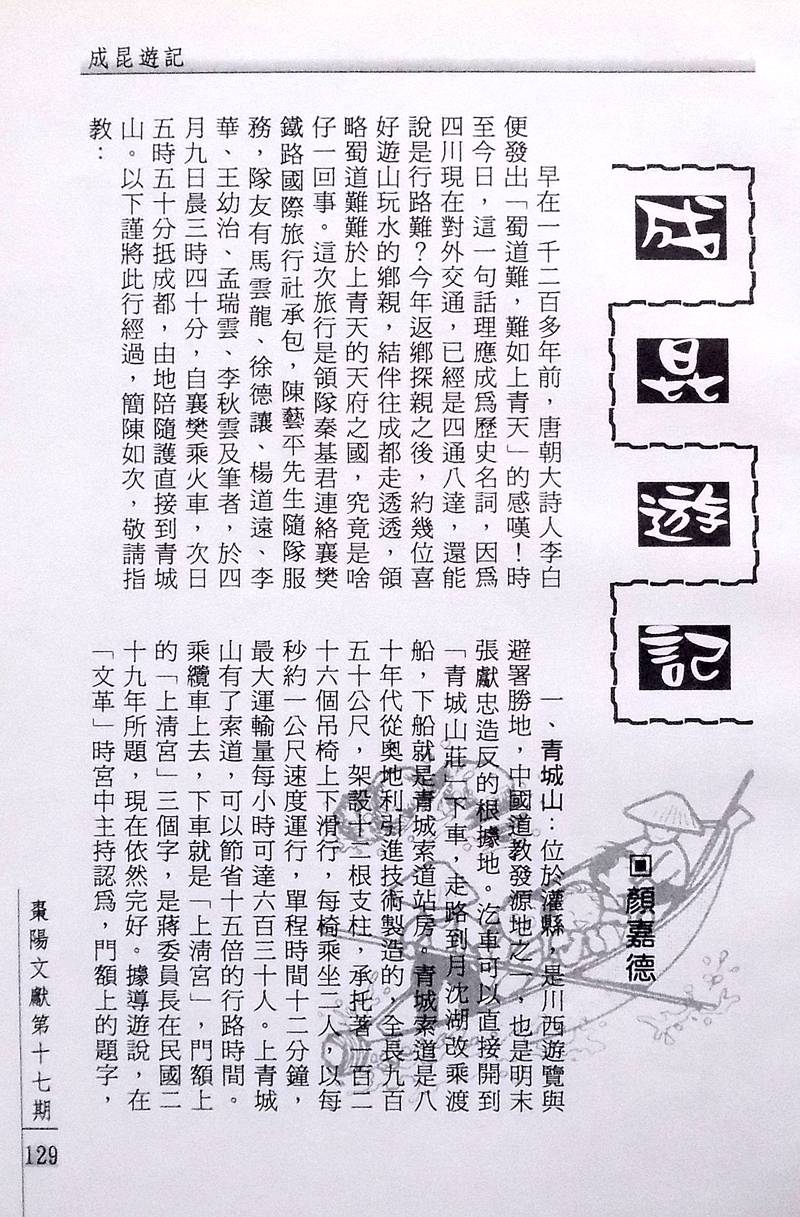 成昆遊記
成昆遊記
顏嘉德
早在一千二百多年前，唐朝大詩人李白
便發出「蜀道難，難如上青天」的感嘆！時
至今日，這一句話理應成為歷史名詞，因為
四川現在對外交通，已經是四通八達，還能
說是行路難？今年返鄉探親之後，約幾位喜
好遊山玩水的鄉親，結伴往成都走透透，領
略蜀道難難於上青天的天府之國，究竟是啥
仔一回事。這次旅行是領隊秦基君連絡襄樊
鐵路國際旅行社承包，陳藝平先生隨隊服
務，隊友有馬雲龍、徐德讓、楊道遠、李
華、王幼治、孟瑞雲、李秋雲及筆者，於四
月九日晨三時四十分，自襄樊乘火車，次日
五時五十分抵成都，由地陪隨護直接到青城
山。以下謹將此行經過，簡陳如次，敬請指
教：
一、青城山：位於灌縣，是川西遊覽與
避署勝地，中國道教發源地之一，也是明末
張獻忠造反的根據地。汔車可以直接開到
「青城山莊」下車，走路到月沈湖改乘渡
船，下船就是青城索道站房。青城索道是八
十年代從奧地利引進技術製造的，全長九百
五十公尺，架設十二根支柱，承托著一百二
十六個吊椅上下滑行，每椅乘坐二人，以每
秒約一公尺速度運行，單程時間十二分鐘，
最大運輸量每小時可達六百三十人。上青城
山有了索道，可以節省十五倍的行路時間。
乘纜車上去，下車就是「上清宮」，門額上
的「上清宮」三個字，是蔣委員長在民國二
十九年所題，現在依然完好。據導遊說，在
「文革」時宮中主持認為，門額上的題字，
棗陽文獻第十七期
129